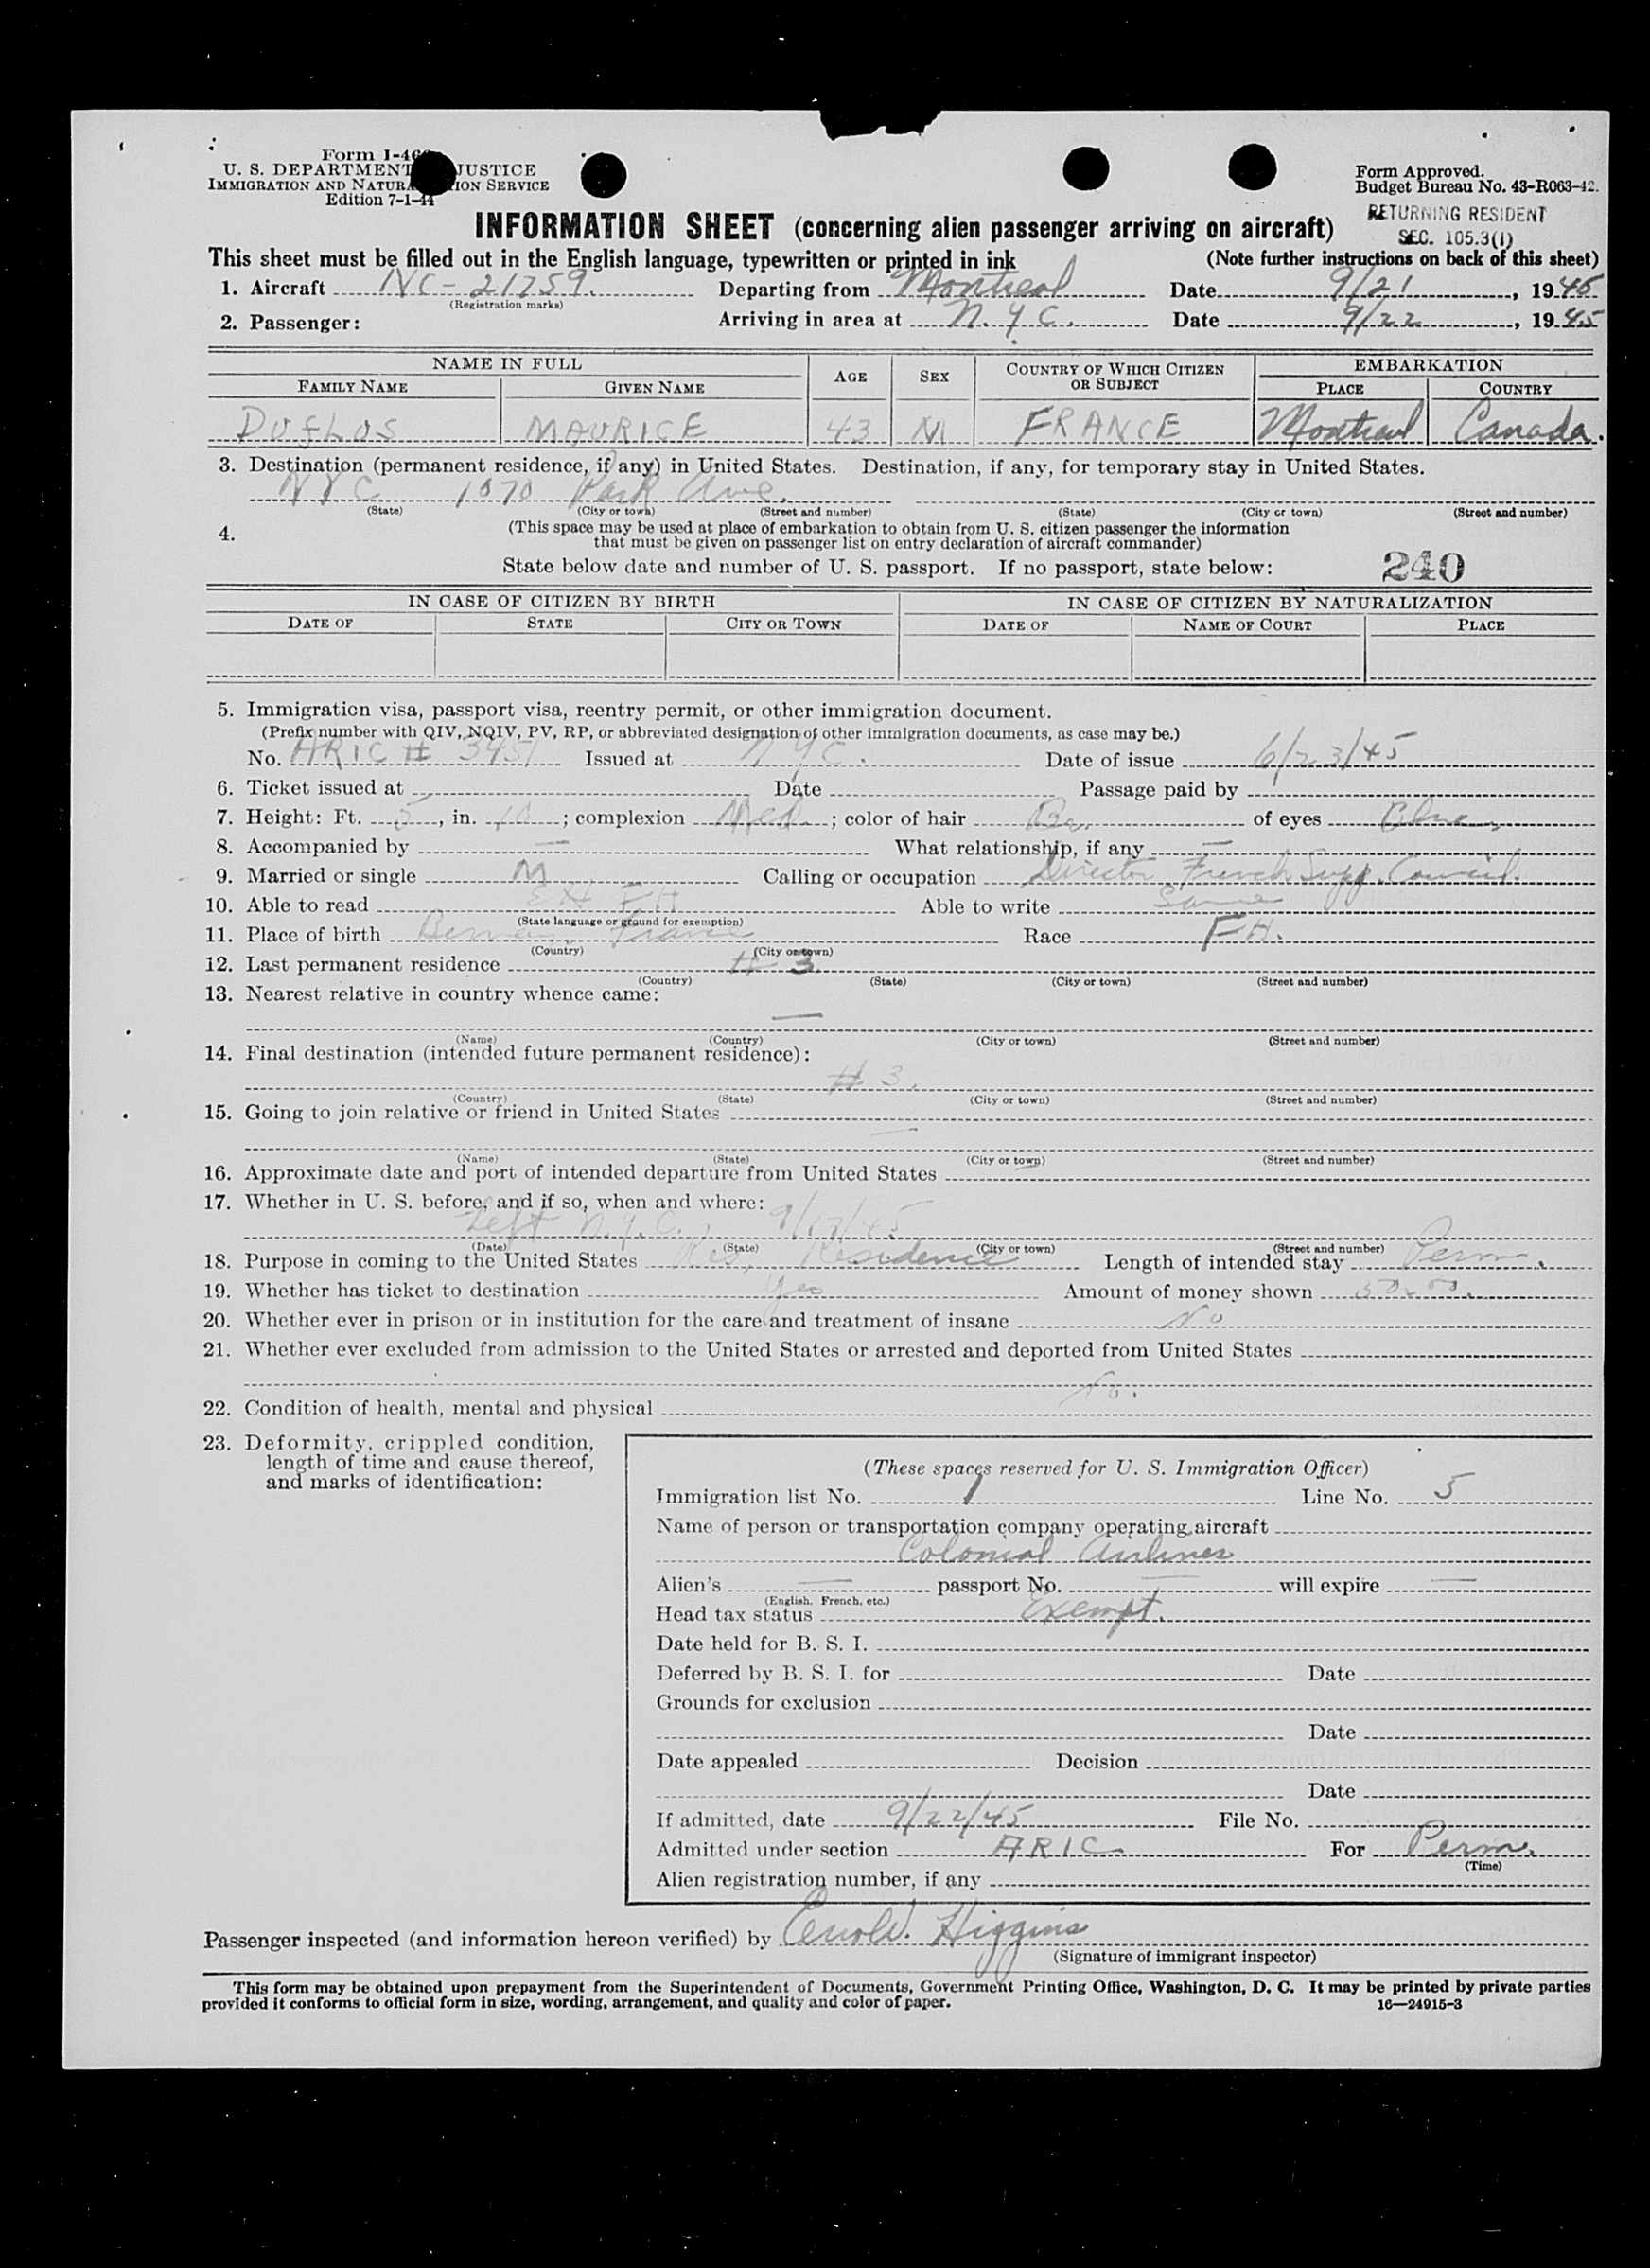 Form I-46
U. S. DEPARTMENT JUSTICE
IMMIGRATION AND NATURA ION SERVICE
Edition 7-1-44
Form Approved.
Budget Bureau No. 43-R063-42.
RETURNING RESIDENT
SEC. 105.3(1)
INFORMATION SHEET (concerning alien passenger arriving on aircraft)
This sheet must be filled out in the English language, typewritten or printed in ink (Note further instructions on back of this sheet)
1. Aircraft NC-21759. Departing from Montreal Date 9/21, 1945
(Registration marks)
2. Passenger: Arriving in area at N.Y.C. Date 9/22, 1945
NAME IN FULL AGE SEX COUNTRY OF WHICH CITIZEN OR SUBJECT EMBARKATION
FAMILY NAME GIVEN NAME PLACE COUNTRY
DUFLOS MAURICE 43 M FRANCE Montreal Canada.
3. Destination (permanent residence, if any) in United States. Destination, if any, for temporary stay in United States.
NYC 1070 Park Ave.
(State) (City or town) (Street and number) (State) (City or town) (Street and number)
4. (This space may be used at place of embarkation to obtain from U. S. citizen passenger the information
that must be given on passenger list on entry declaration of aircraft commander)
State below date and number of U. S. passport. If no passport, state below: 240
IN CASE OF CITIZEN BY BIRTH IN CASE OF CITIZEN BY NATURALIZATION
DATE OF STATE CITY OR TOWN DATE OF NAME OF COURT PLACE
5. Immigration visa, passport visa, reentry permit, or other immigration document.
(Prefix number with QIV, NQIV, PV, RP, or abbreviated designation of other immigration documents, as case may be.)
No. ARIC # 3451 Issued at NYC. Date of issue 6/23/45
6. Ticket issued at Date Passage paid by
7. Height: Ft. 5, in. 10; complexion Med.; color of hair Br. of eyes Blue
8. Accompanied by — What relationship, if any —
9. Married or single M Calling or occupation Director French Supp. Council.
10. Able to read FH Able to write Same
(State language or ground for exemption)
11. Place of birth Bernay France Race FH.
(Country) (City or town)
12. Last permanent residence # 3
(Country) (State) (City or town) (Street and number)
13. Nearest relative in country whence came:
—
(Name) (Country) (City or town) (Street and number)
14. Final destination (intended future permanent residence):
# 3.
(Country) (State) (City or town) (Street and number)
15. Going to join relative or friend in United States
—
(Name) (State) (City or town) (Street and number)
16. Approximate date and port of intended departure from United States —
17. Whether in U. S. before, and if so, when and where:
Left N.Y.C., 9/17/45
(Date) (State) (City or town) (Street and number)
18. Purpose in coming to the United States Residence Length of intended stay Perm.
19. Whether has ticket to destination Yes Amount of money shown 50.00.
20. Whether ever in prison or in institution for the care and treatment of insane No
21. Whether ever excluded from admission to the United States or arrested and deported from United States
No.
22. Condition of health, mental and physical
23. Deformity, crippled condition,
length of time and cause thereof,
and marks of identification:
(These spaces reserved for U. S. Immigration Officer)
Immigration list No. 1 Line No. 5
Name of person or transportation company operating aircraft
Colonial Airlines
Alien's — passport No. — will expire —
(English, French, etc.)
Head tax status Exempt.
Date held for B. S. I.
Deferred by B. S. I. for Date
Grounds for exclusion
Date
Date appealed Decision
Date
If admitted, date 9/22/45 File No.
Admitted under section ARIC For Perm.
(Time)
Alien registration number, if any
Passenger inspected (and information hereon verified) by Higgins
(Signature of immigrant inspector)
This form may be obtained upon prepayment from the Superintendent of Documents, Government Printing Office, Washington, D. C. It may be printed by private parties
provided it conforms to official form in size, wording, arrangement, and quality and color of paper. 16—24915-3